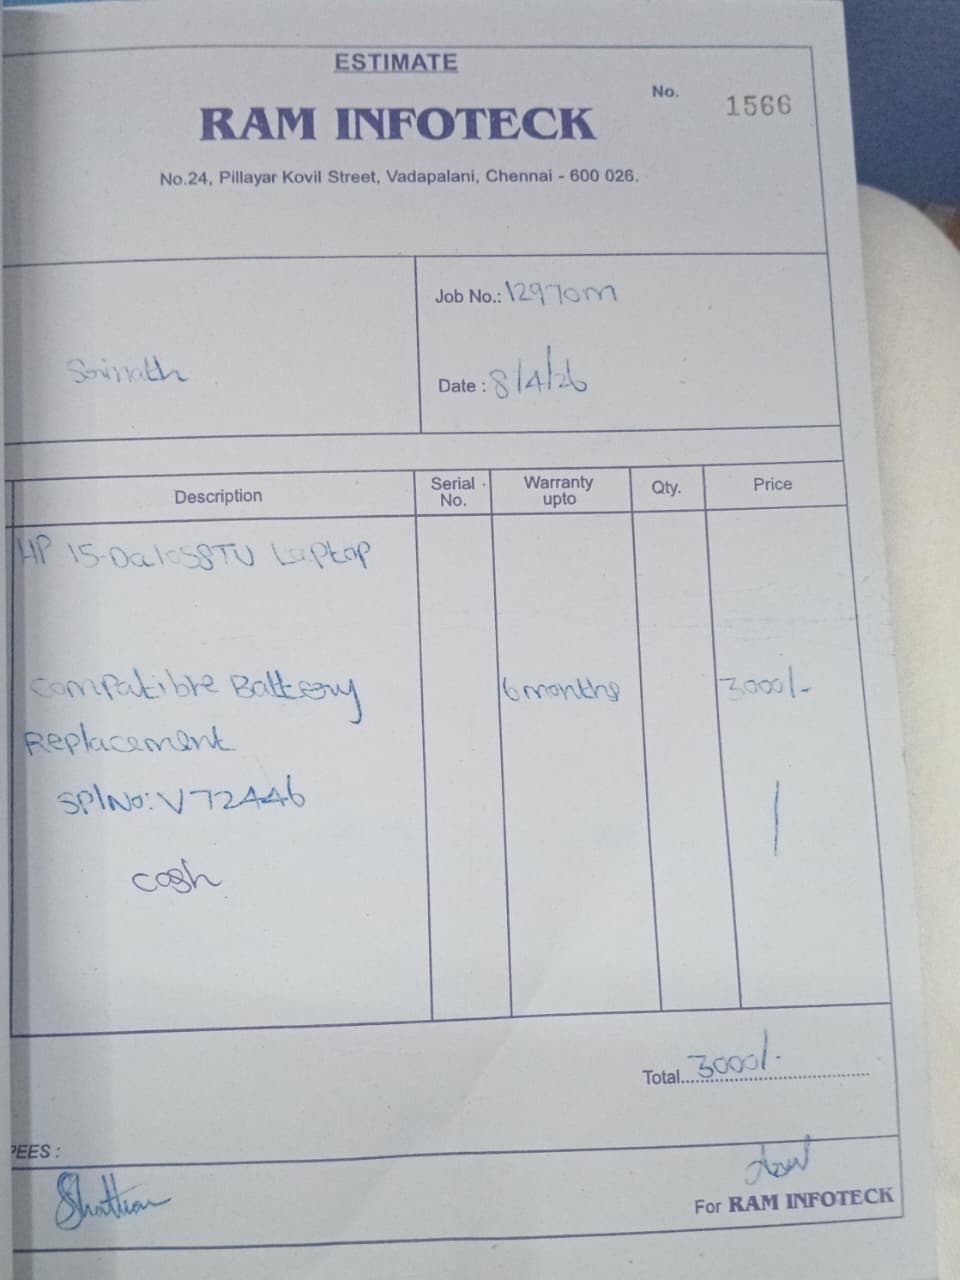 ESTIMATE
No. 1566
RAM INFOTECK
No.24, Pillayar Kovil Street, Vadapalani, Chennai - 600 026.
Job No.: 12970m
Srinath
Date : 8/4/26
Description Serial No. Warranty upto Qty. Price
HP 15-Da1058TU Laptop
Compatible Battery 6 months 3000/-
Replacement
SP/No: V72446
Cash
Total 3000/-
PEES :
For RAM INFOTECK